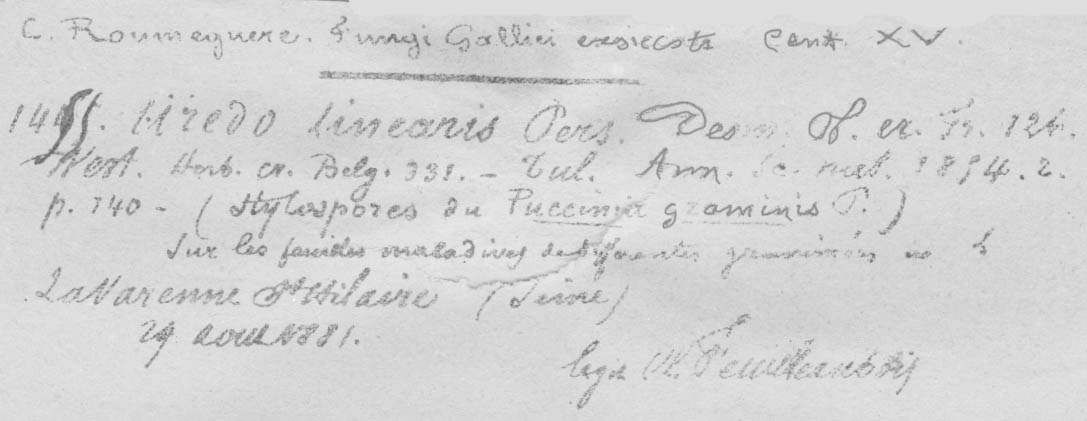 C. Roumeguere. Fungi Gallici exsiccati Cent. XV.
Uredo linearis Pers. Desm. Pl. cr. Fr. 124.
West. Herb. cr. Belg. 331. – Tul. Ann. Sc. nat. 1854. 2.
p. 140 – (Stylospores du Puccinia graminis P.)
Sur les feuilles maladives de différentes graminées
La Varenne St Hilaire (Seine)
29 aout 1881.
legit